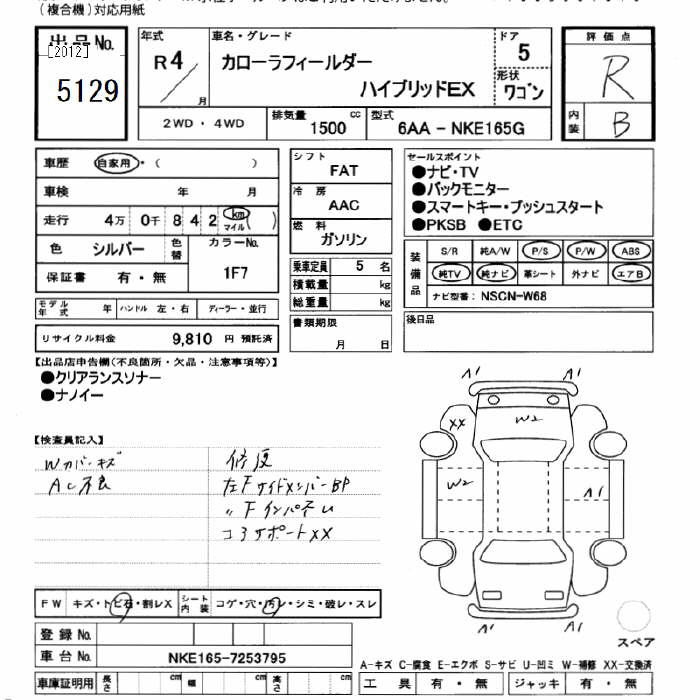 （複合機）対応用紙
出品No.
[2012]
5129
年式
R4 / 月
車名・グレード
カローラフィールダー
ハイブリッドEX
ドア
5
形状
ワゴン
評価点
R
内装
B
2WD ・ 4WD
排気量 1500 cc
型式 6AA - NKE165G
車歴 自家用・（ ）
車検 年 月
走行 4万 0千 8 4 2 km マイル ( )
色 シルバー 色替 カラーNo.
1F7
保証書 有・無
モデル年式 年 ハンドル 左・右 ディーラー・並行
リサイクル料金 9,810 円 預託済
シフト
FAT
冷房
AAC
燃料
ガソリン
乗車定員 5 名
積載量 kg
総重量 kg
書類期限
月 日
セールスポイント
●ナビ・TV
●バックモニター
●スマートキー・プッシュスタート
●PKSB ●ETC
装備品
S/R 純A/W P/S P/W ABS
純TV 純ナビ 革シート 外ナビ エアB
ナビ型番： NSCN-W68
後日品
【出品店申告欄（不良箇所・欠品・注意事項等）】
●クリアランスソナー
●ナノイー
【検査員記入】
Wカバーキズ
AC不良
修復
左FサイドメンバーBP
〃Fインパネし
コアサポートXX
A1 A1
XX W2
W2 A1
A1 A1
スペア
FW キズ・トビ石・割レX シート内装 コゲ・穴・汚レ・シミ・破レ・スレ
登録No.
車台No. NKE165-7253795
車庫証明用 長さ cm 幅 cm 高さ cm
A-キズ C-腐食 E-エクボ S-サビ U-凹ミ W-補修 XX-交換済
工具 有・無 ジャッキ 有・無